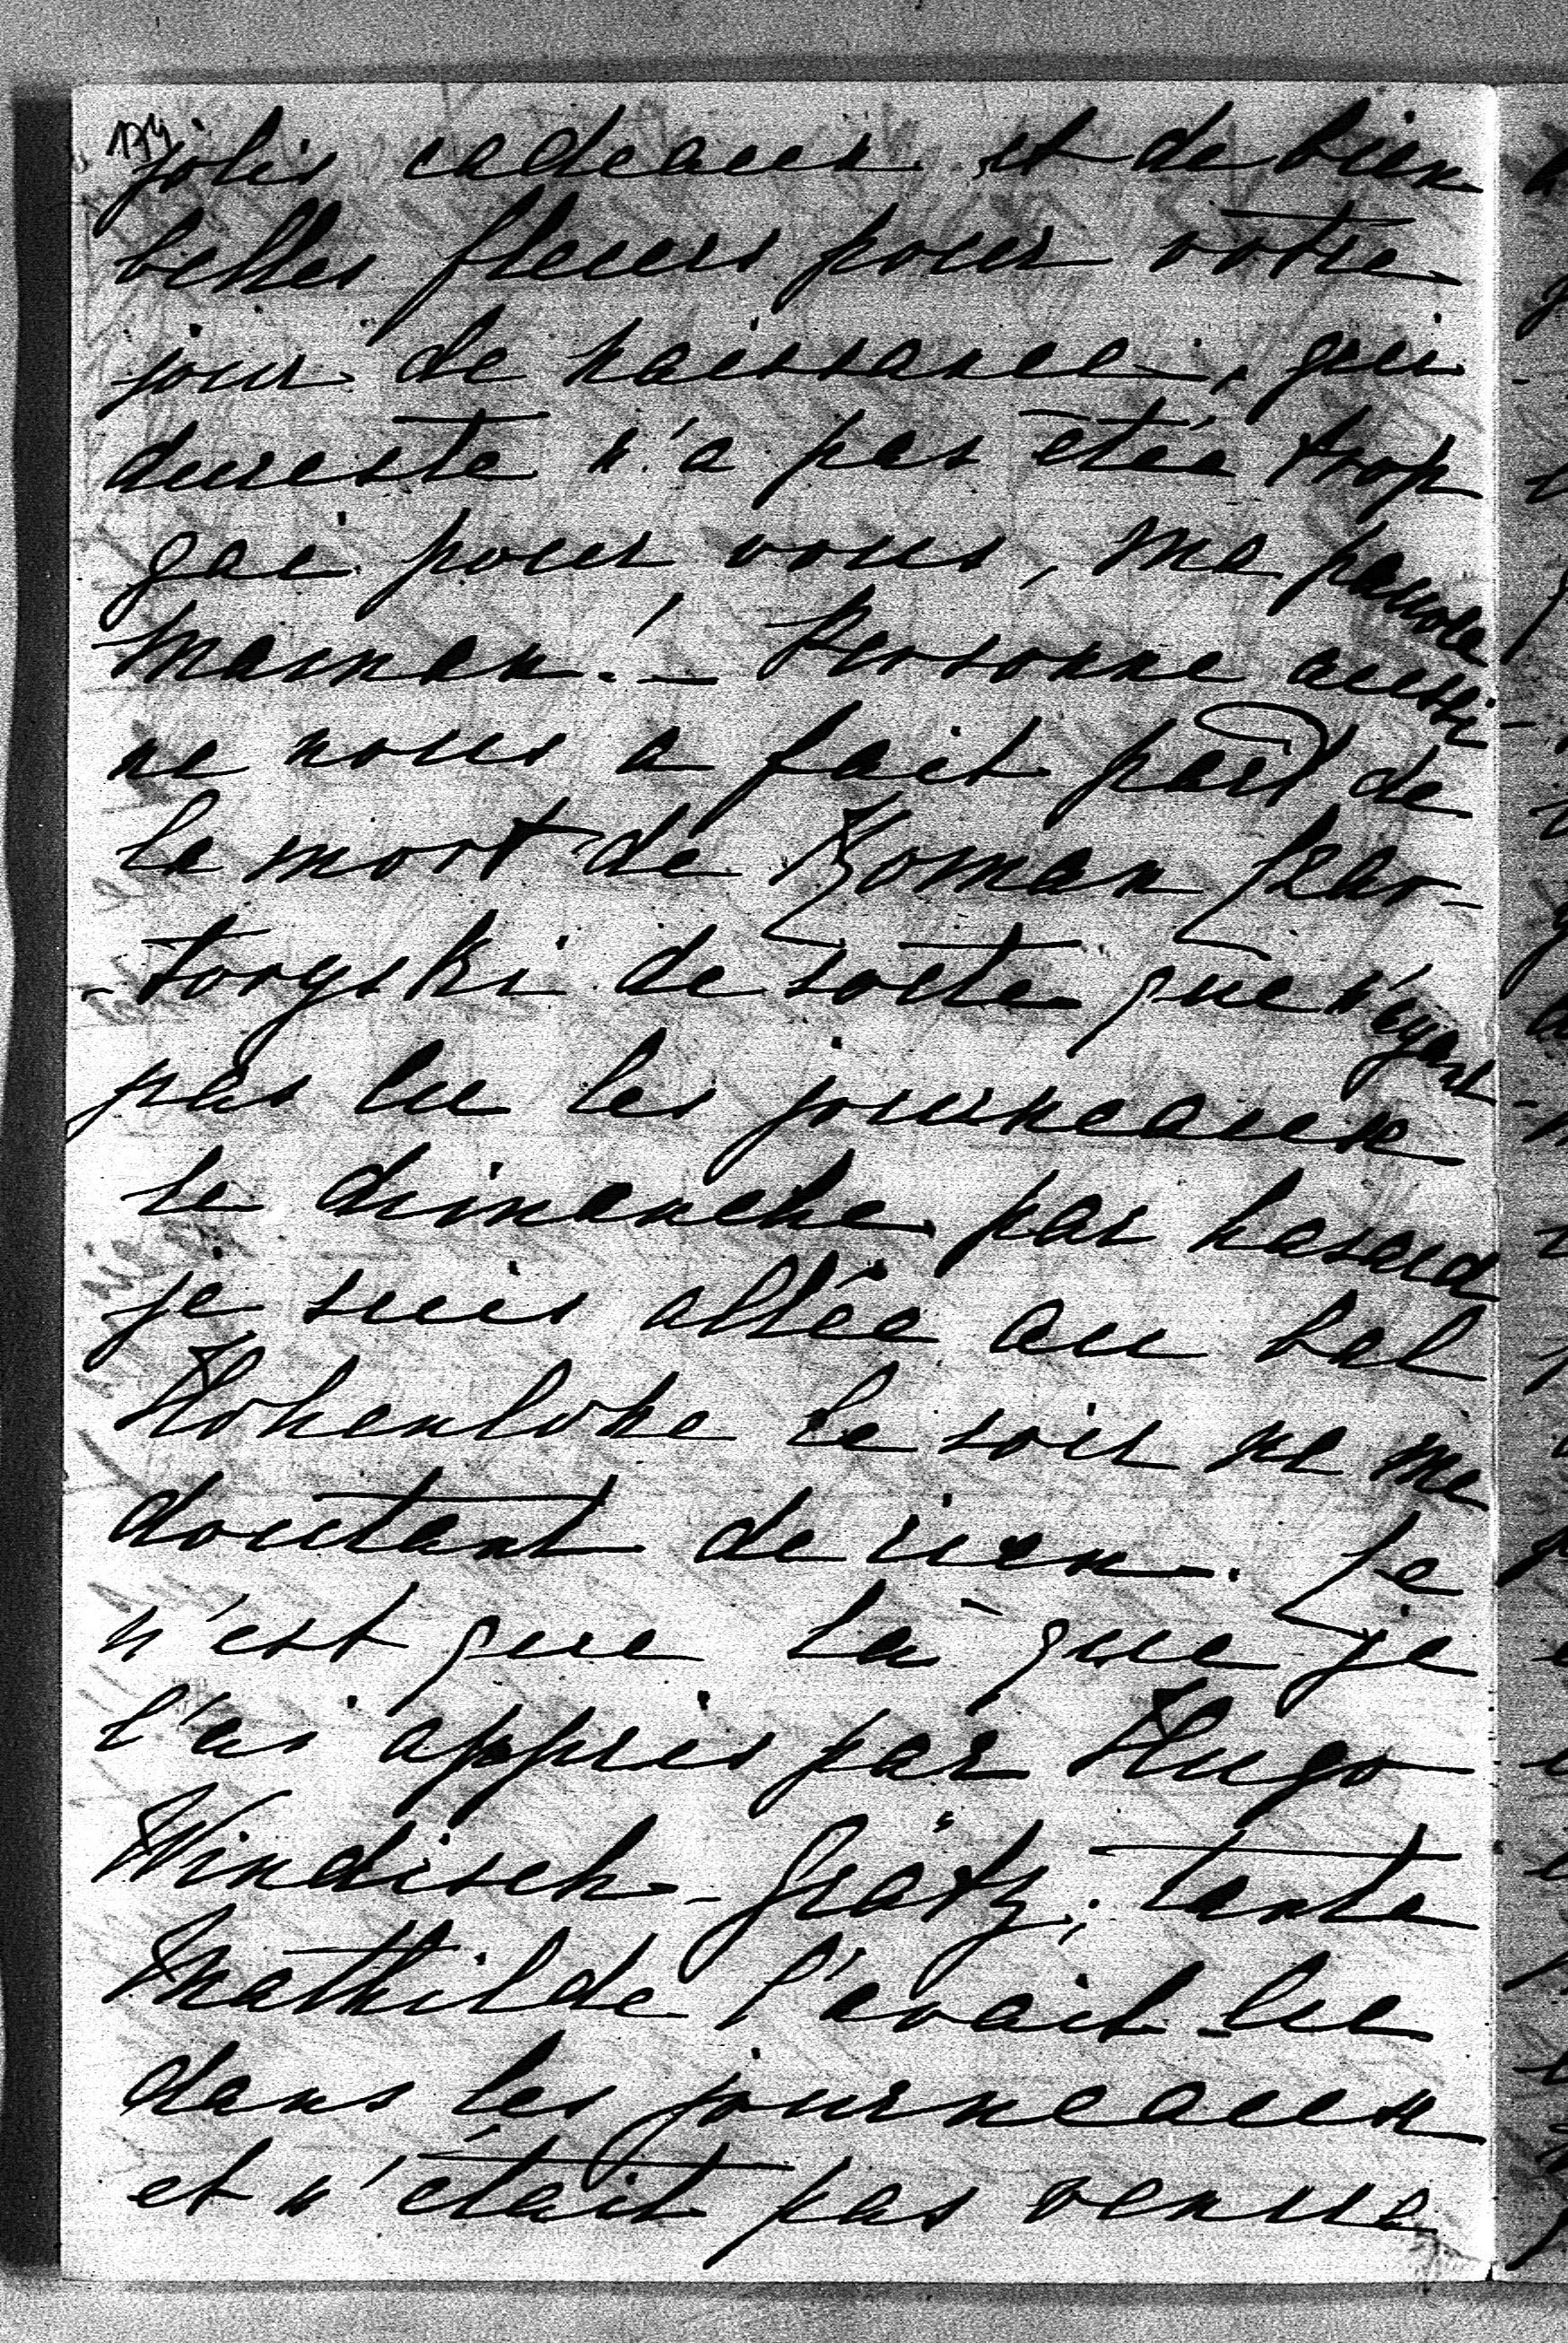 174
jolis cadeaux et de bien
belles fleurs pour votre
jour de naissance, qui
dureste n'a pas étée trop
gai pour vous, ma pauvre
Maman! – Personne aussi
ne nous a fait part de
la mort de Roman Czar-
-toryski de sorte que n'ayant
pas lu les journeaux
le dimanche par hasard
je suis allée au bal
Hohenlohe le soir ne me
doutant de rien. Ce
n'est que là que je
l'ai appris par Hugo
Windisch-Grätz; tante
Mathilde l'avait lu
dans les journeaux
et n'était pas venue